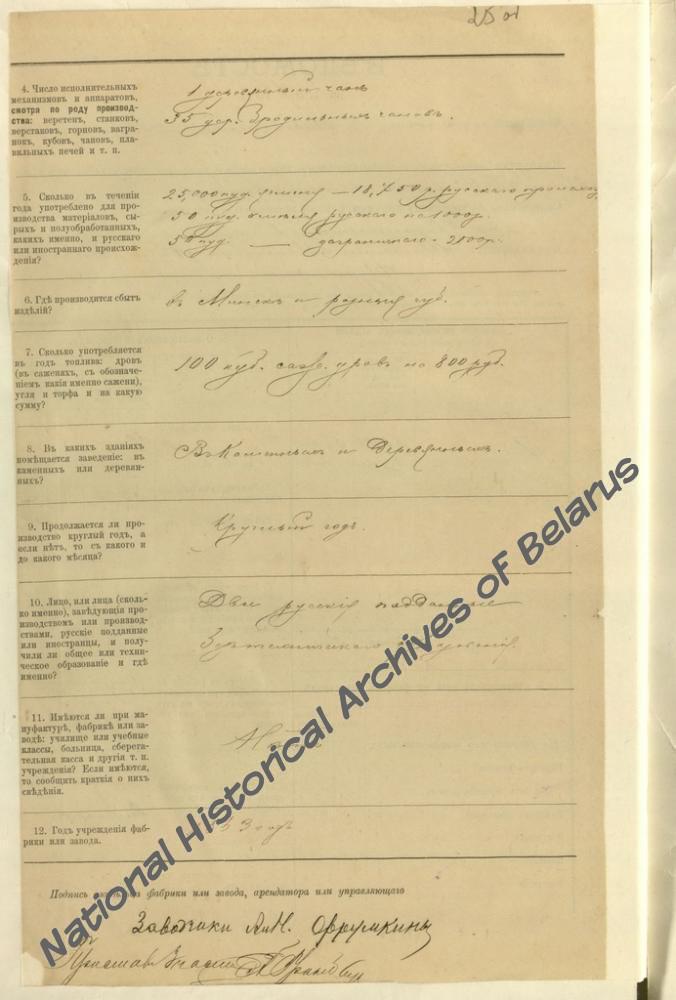 25 об
4. Число исполнительныхъ
механизмовъ и аппаратовъ,
смотря по роду производ-
ства: веретенъ, станковъ,
верстановъ, горновъ, вагра-
нокъ, кубовъ, чановъ, пла-
вильныхъ печей и т. п.
1 деревянный чанъ
35 дер. бродильныхъ чановъ.
5. Сколько въ теченіи
года употреблено для про-
изводства матеріаловъ, сы-
рыхъ и полуобработанныхъ,
какихъ именно, и русскаго
или иностраннаго происхож-
денія?
25,000 пуд. ячменя — русскаго
50 пуд. хмѣля русскаго на 1000 р.
50 пуд. — заграничнаго - 2100 р.
6. Гдѣ производится сбытъ
издѣлій?
въ Минскѣ и губ.
7. Сколько употребляется
въ годъ топлива: дровъ
(въ саженяхъ, съ обозначе-
ніемъ какія именно сажени),
угля и торфа и на какую
сумму?
100 куб. саж. дровъ на 800 руб.
8. Въ какихъ зданіяхъ
помѣщается заведеніе: въ
каменныхъ или деревян-
ныхъ?
Въ Каменныхъ и Деревянныхъ.
9. Продолжается ли про-
изводство круглый годъ, а
если нѣтъ, то съ какого и
до какого мѣсяца?
Круглый годъ.
10. Лицо, или лица (сколь-
ко именно), завѣдующія про-
изводствомъ или производ-
ствами, русскіе подданные
или иностранцы, и полу-
чили ли общее или техни-
ческое образованіе и гдѣ
именно?
Два русскіе подданные
11. Имѣются ли при ма-
нуфактурѣ, фабрикѣ или за-
водѣ: училище или учебные
классы, больница, сберега-
тельная касса и другія т. п.
учрежденія? Если имѣются,
то сообщить краткія о нихъ
свѣдѣнія.
Нѣтъ
12. Годъ учрежденія фаб-
рики или завода.
Подпись фабрики или завода, арендатора или управляющаго
Заводчики А. и Н. Фрумкины
Приставъ
National Historical Archives of Belarus